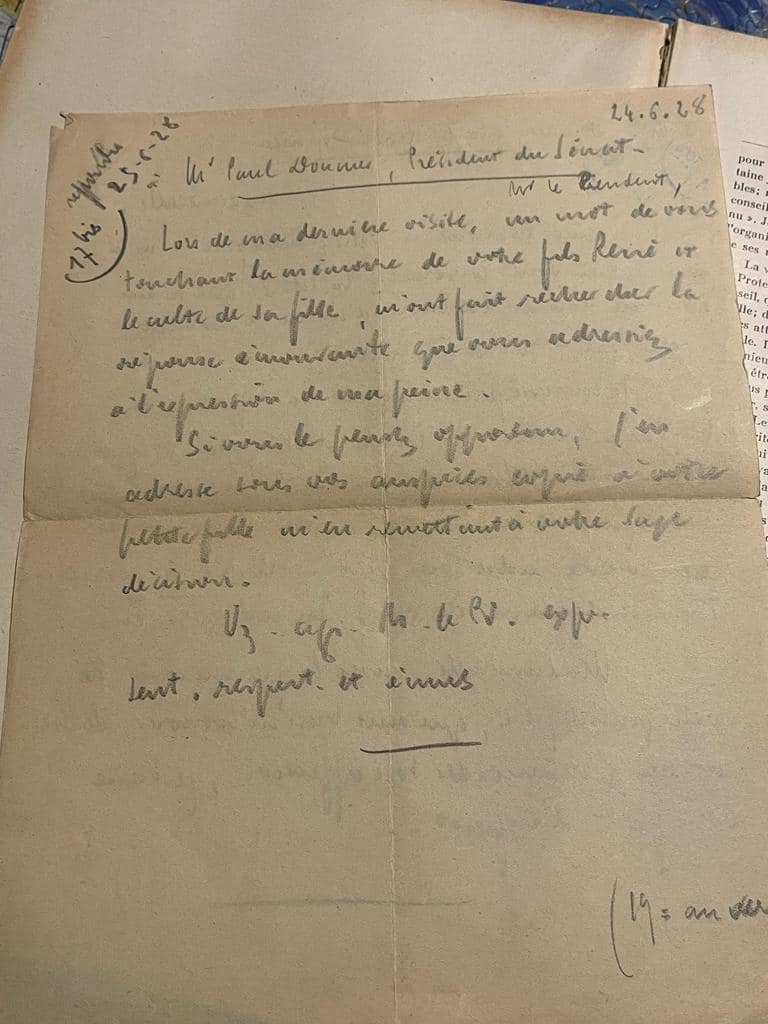 24.6.28
répondu
25-6-28
(17 bis
à Mr Paul Doumer, Président du Sénat-
Mr le Président,
Lors de ma dernière visite, un mot de vous
touchant la mémoire de votre fils René et
le culte de sa fille, m'ont fait rechercher la
réponse émouvante que vous adressiez
à l'expression de ma peine.
Si vous le pensez opportun, j'en
adresse sous vos auspices copie à votre
petite fille m'en remettant à votre sage
décision.
Vz - agr - M - le Pt. expr.
sent. respect. et émus
(19 = au
pour
taine
bles;
conseil
nu ». J
l'organi
e ses
La v
Prote
seil,
lle; d
s att
le. I
nieu
étra
us p
, s
Le